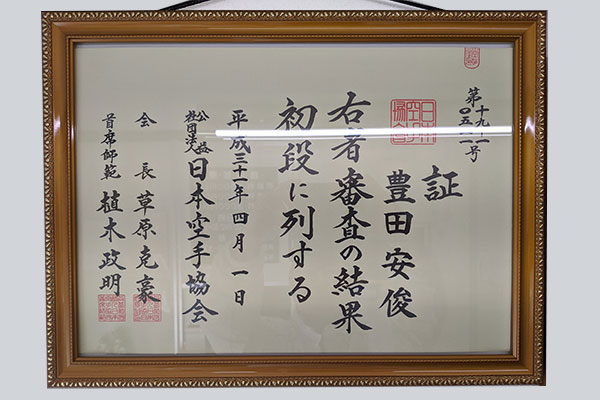 第十九-一
〇五二一号
証
豊田安俊
右者審査の結果
初段に列する
平成三十一年四月一日
公益
社団法人
日本空手協会
会長 草原克豪
首席師範 植木政明